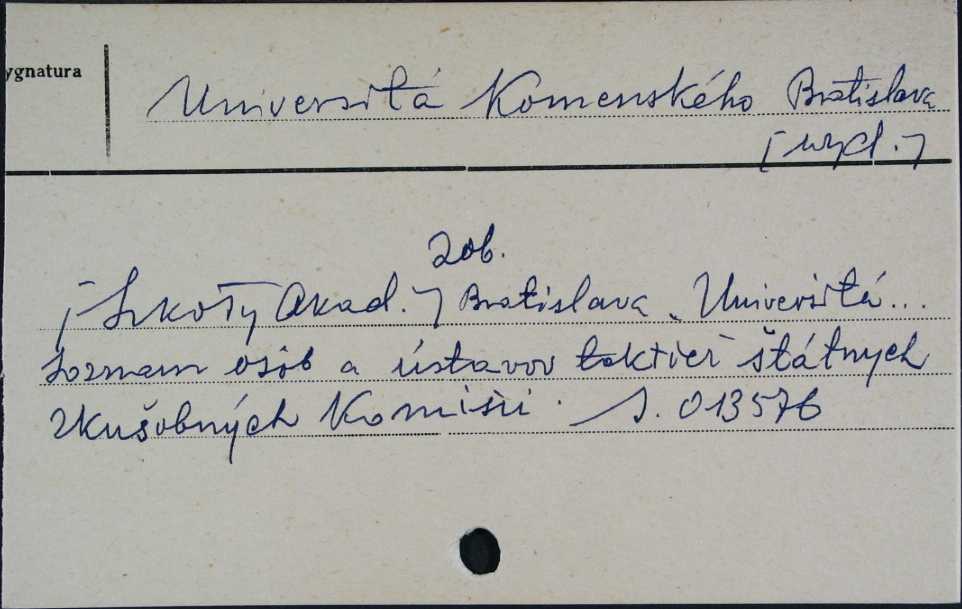 ygnatura
Universitá Komenského Bratislava
[wyd.]
zob.
[Szkoły Akad.] Bratislava. Universitá...
Soznam osôb a ústavov taktiež štátnych
zkušobných Komisii. S. 013576